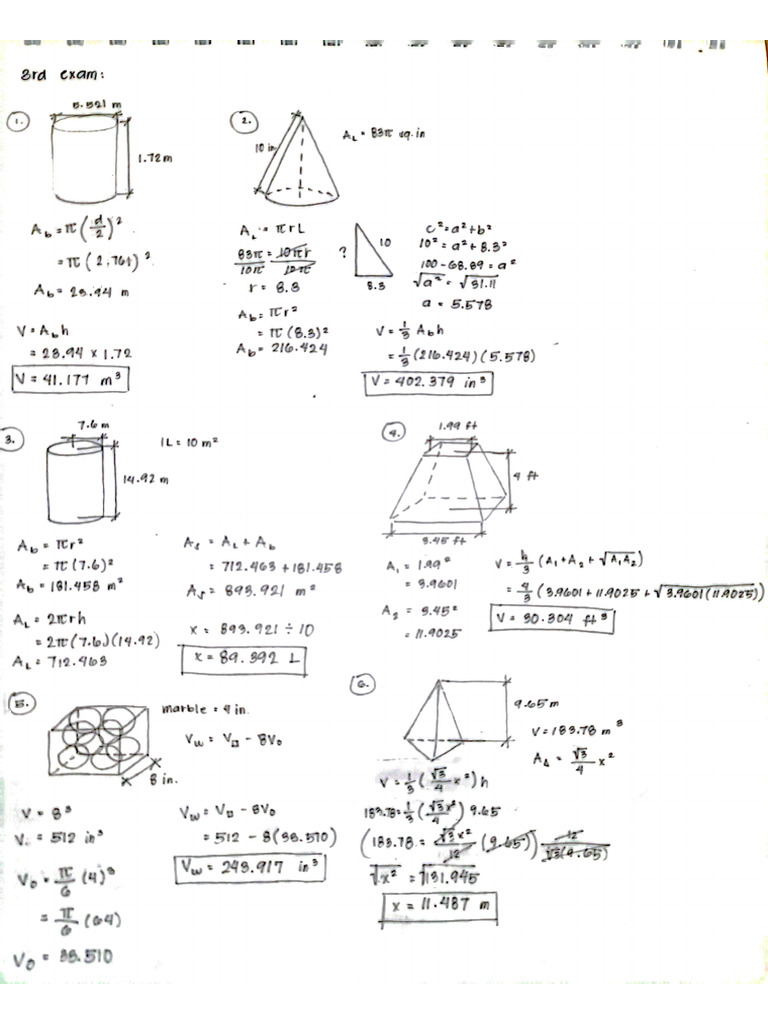 3rd exam:
1.
5.521 m
1.72 m
A_b = π(d/2)²
= π(2.761)²
A_b = 23.94 m
V = A_b h
= 23.94 x 1.72
V = 41.177 m³
2.
10 in
A_L = 83π sq.in
A_L = πrL
83π/10π = 10πr/10π
r = 8.3
A_b = πr²
= π(8.3)²
A_b = 216.424
?
10
8.3
c² = a² + b²
10² = a² + 8.3²
100 - 68.89 = a²
√a² = √31.11
a = 5.578
V = 1/3 A_b h
= 1/3 (216.424)(5.578)
V = 402.379 in³
3.
7.6 m
14.92 m
1L = 10 m²
A_b = πr²
= π(7.6)²
A_b = 181.458 m²
A_L = 2πrh
= 2π(7.6)(14.92)
A_L = 712.463
A_s = A_L + A_b
= 712.463 + 181.458
A_s = 893.921 m²
x = 893.921 ÷ 10
x = 89.392 L
4.
1.99 ft
4 ft
3.45 ft
A₁ = 1.99²
= 3.9601
A₂ = 3.45²
= 11.9025
V = h/3 (A₁ + A₂ + √A₁A₂)
= 4/3 (3.9601 + 11.9025 + √3.9601(11.9025))
V = 30.304 ft³
5.
8 in.
marble = 4 in.
V_w = V_□ - 8V_o
V = 8³
V = 512 in³
V_o = π/6 (4)³
= π/6 (64)
V_o = 33.510
V_w = V_□ - 8V_o
= 512 - 8(33.510)
V_w = 243.917 in³
6.
9.65 m
V = 183.78 m³
A_Δ = √3/4 x²
V = 1/3 (√3/4 x²) h
183.78 = 1/3 (√3x²/4) 9.65
(183.78 = √3x²/12 (9.65)) 12/√3(9.65)
√x² = √131.945
x = 11.487 m